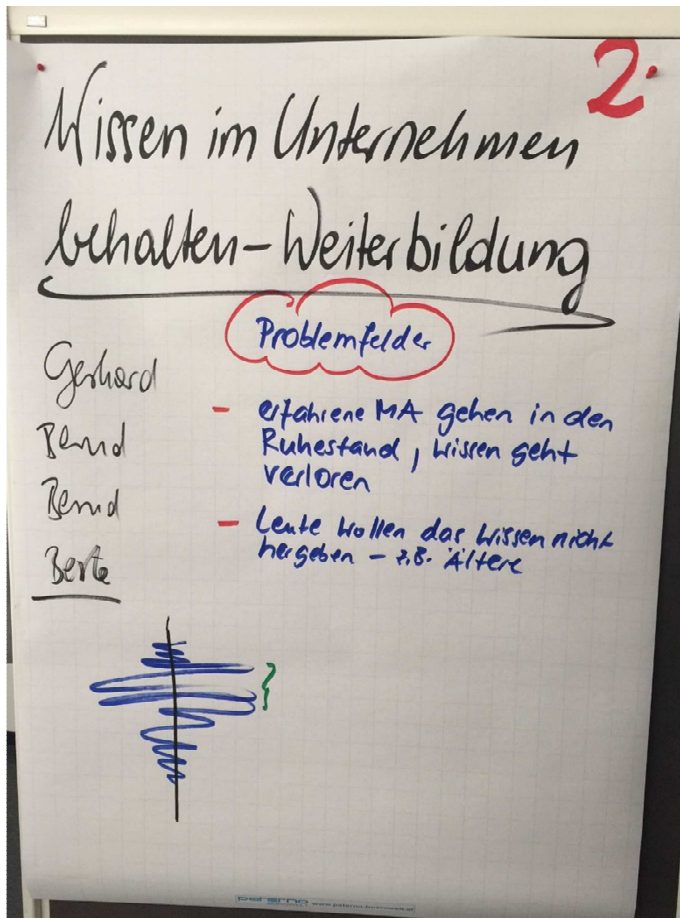 2.
Wissen im Unternehmen
behalten - Weiterbildung
Problemfelder
Gerhard
Bernd
Bernd
- erfahrene MA gehen in den
Ruhestand, wissen geht
verloren
- Leute wollen das Wissen nicht
hergeben - z.B. Ältere